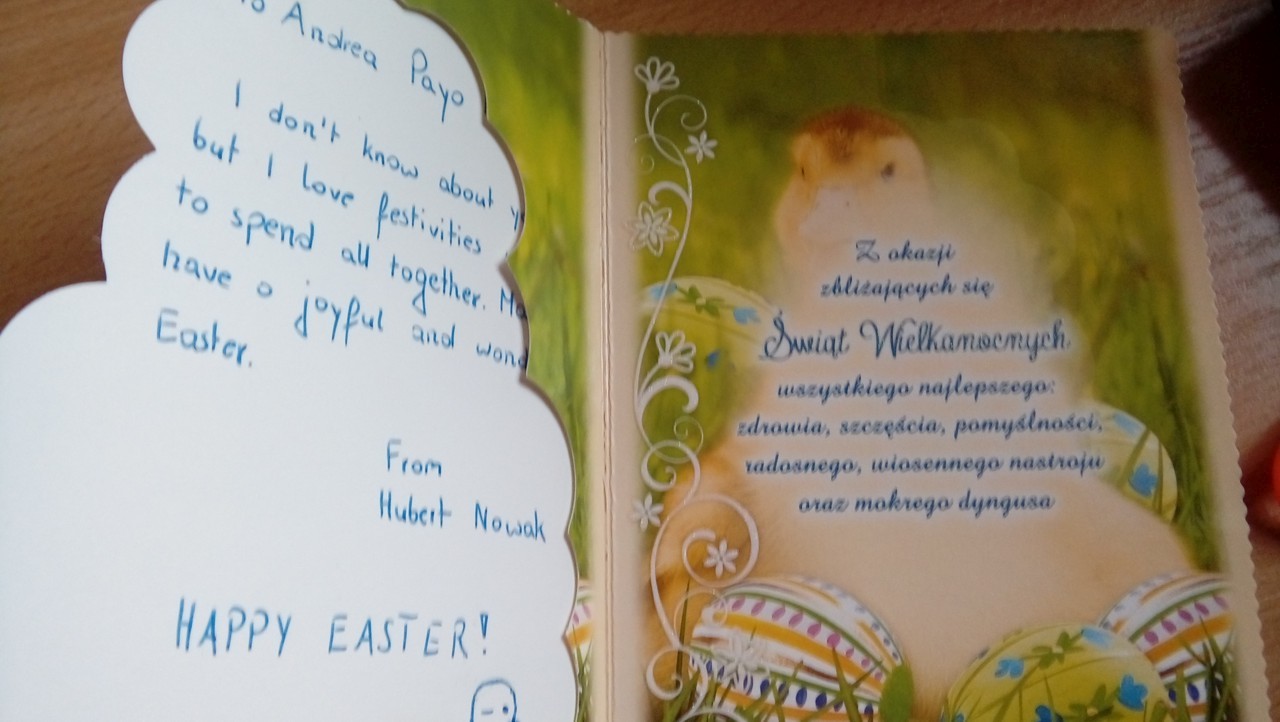 Andrea Payo
I don't know about
but I love festivities
to spend all together.
have a joyful and
Easter.
From
Hubert Nowak
HAPPY EASTER!
Z okazji
zbliżających się
Świąt Wielkanocnych
wszystkiego najlepszego:
zdrowia, szczęścia, pomyślności,
radosnego, wiosennego nastroju
oraz mokrego dyngusa